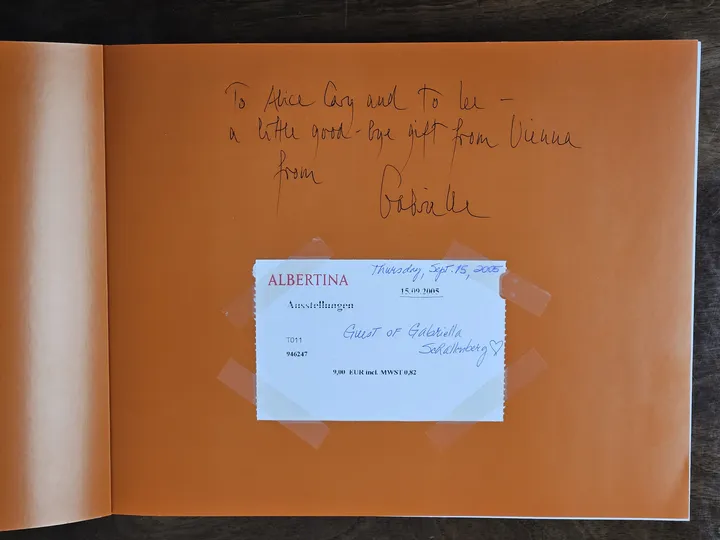 To Alice Cary and to Lee –
a little good-bye gift from Vienna
from
Gabrielle
Thursday, Sept. 15, 2005
ALBERTINA
15.09.2005
Ausstellungen
Guest of Gabriella
T011
946247
9,00 EUR incl. MWST 0,82